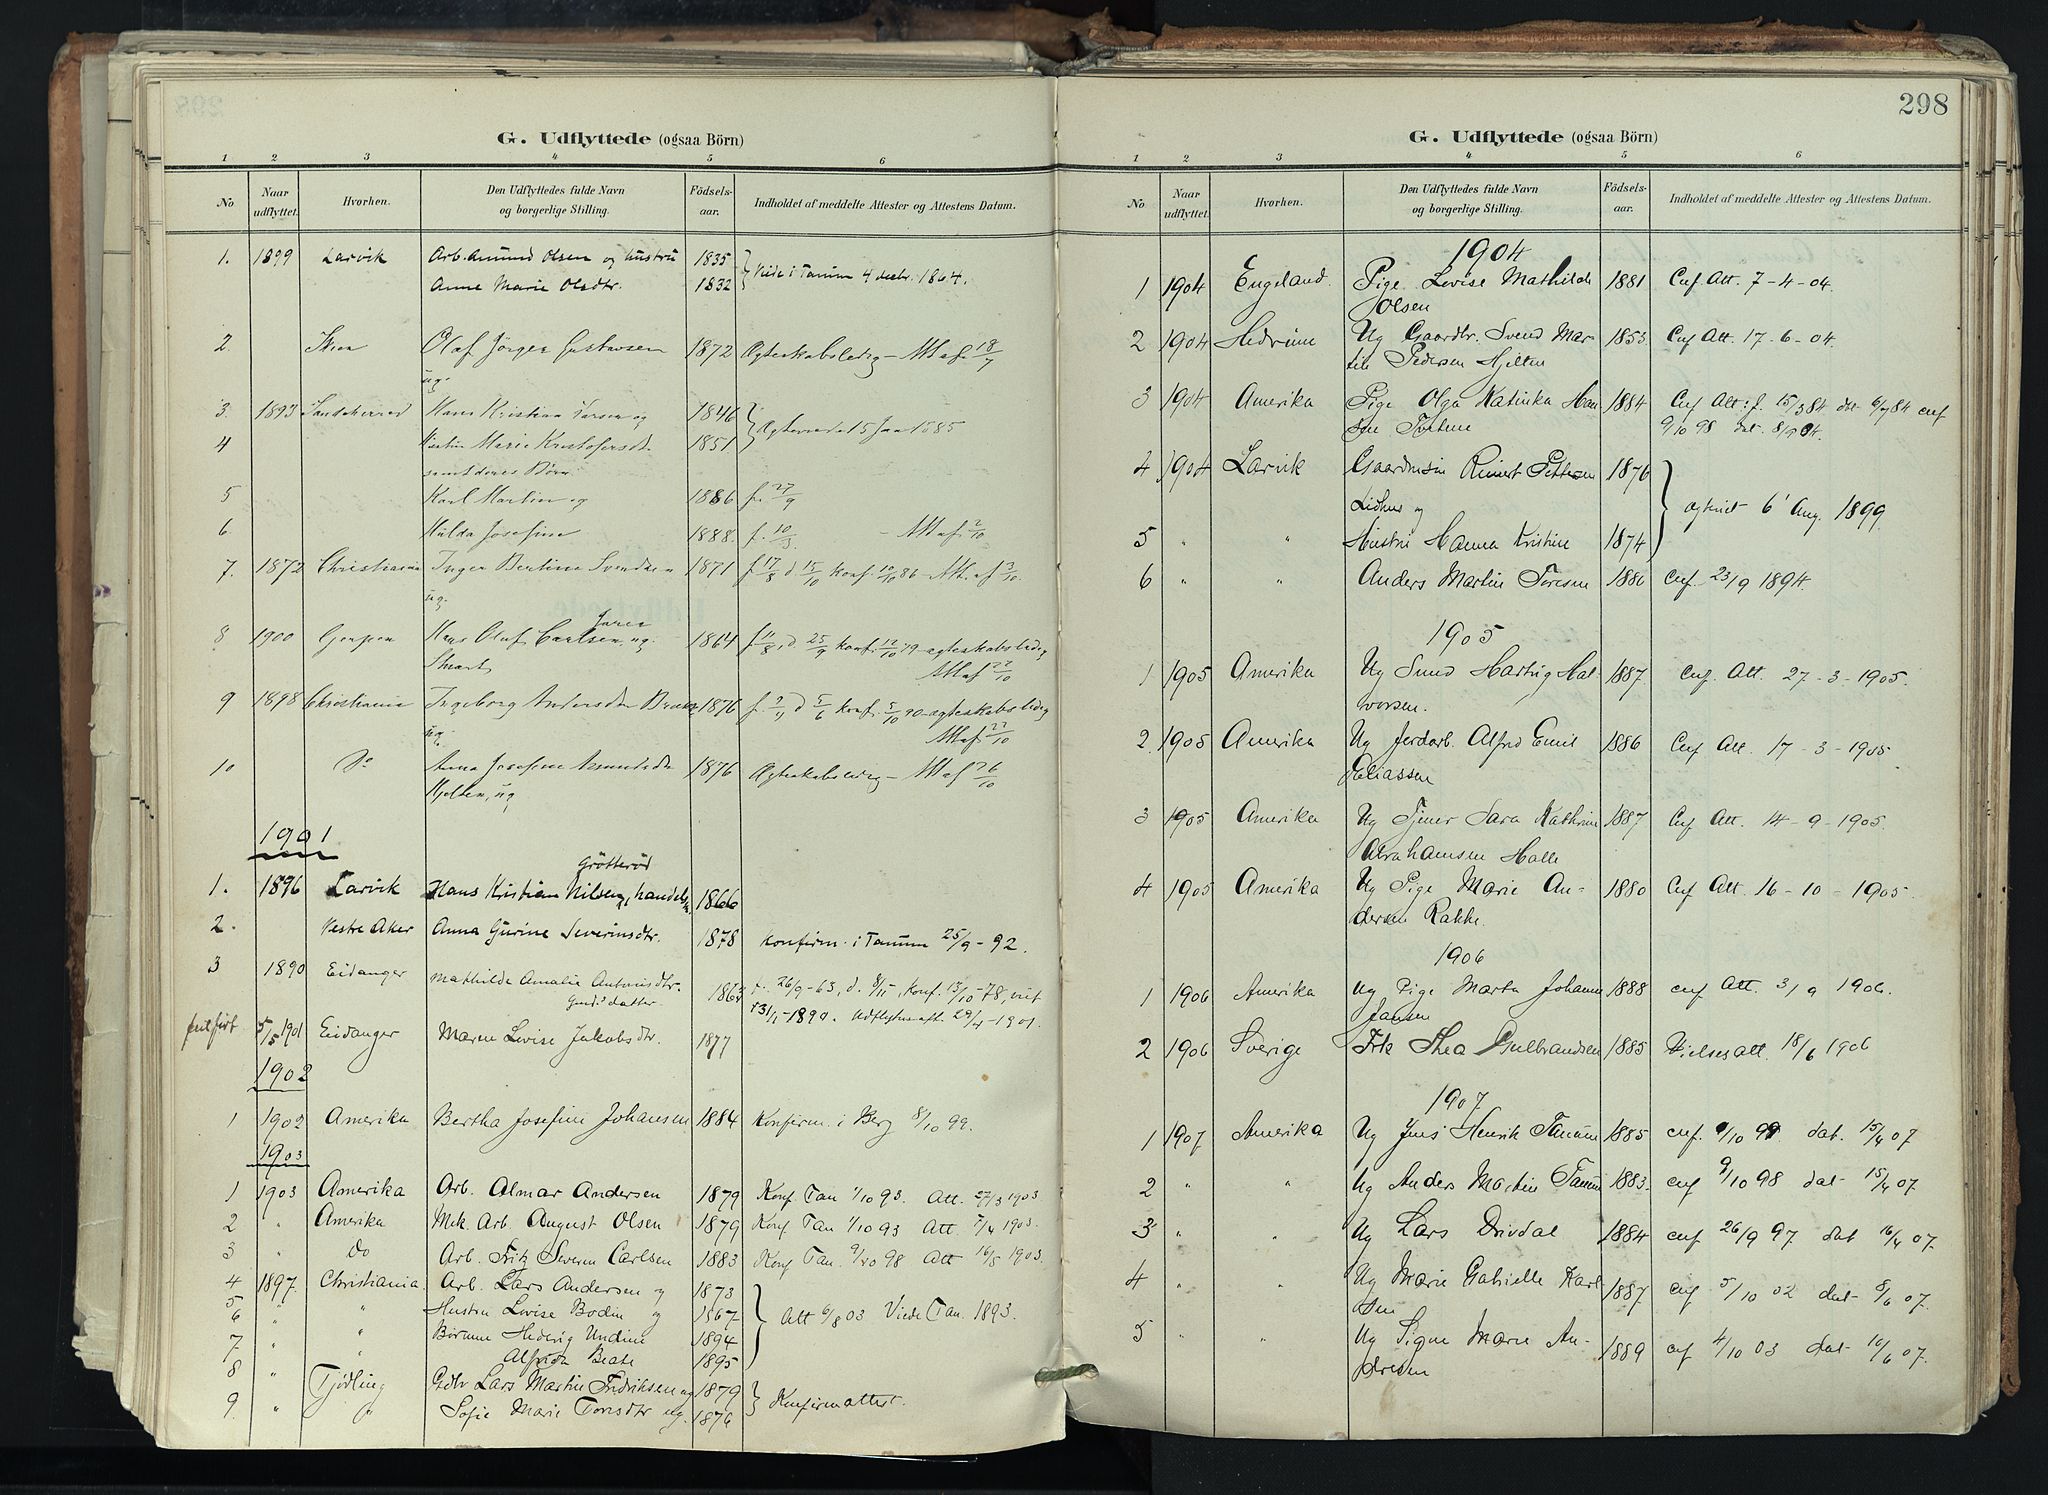 G. Udflyttede (ogsaa Börn)
1 2 3 4 5 6
No Naar udflyttet. Hvorhen. Den Udflyttedes fulde Navn og borgerlige Stilling. Födsels-aar. Indholdet af meddelte Attester og Attestens Datum.
1. 1899 Larvik Arb. Amund Olsen og hustru 1835
Anne Marie Olsdtr. 1832 Viede i Tanum 4 decbr. 1864.
2. Skien Olaf Jörgen Gustavsen 1872 Ægteskabsledig - Att. af 18/7
ug.
3. 1893 Sandeherred Hans Kristian Larsen og 1846
4 Marie Kristofersdt. 1851 Ægteviede 15 Jan 1885
samt deres Børn
5 Karl Martin og 1886 f. 27/9
6. Hulda Josefine 1888. f. 10/3. - Att. af 2/10
7. 1872 Christiania Inger Bertine Svendsen 1871 f. 17/8 d 15/10 konf. 10/10 86 - Att. af 3/10.
ug.
8 1900 Gjerpen Hans Oluf Carlsen, ug. 1864 f. 11/8, d. 25/9 konf. 12/10 79 - ægteskabsledig
Att. af 22/10
9 1898 Christiania Ingeborg Andersdtr 1876 f. 2/4 d 5/6 konf. 5/10 90 - ægteskabsledig
ug. Att. af 22/10
10 Do Anna Josefine 1876 Ægteskabsledig - Att. af 26/10
Hjelten, ug
1901
Grötteröd
1. 1896 Larvik Hans Kristian Nilsen, handelsm. 1866
2. Vestre Aker Anna Gurine Severinsdtr. 1878 Konfirm. i Tanum 25/9 - 92.
3 1890 Eidanger Mathilde Amalie Antonisdtr. 1863 f. 26/9 - 63, d. 8/11, Konf. 13/10 - 78, viet
Gmd.s datter 13/11 - 1890. Udflytn.att. 29/4 - 1901.
5/5 1901 Eidanger Maren Lovise Jakobsdtr. 1877
1902
1 1902 Amerika Bertha Josefine Johansen 1884 Konfirm. i Berg 8/10 99.
1903
1 1903 Amerika Arb. Almar Andersen 1879 Konf. Tan 1/10 93. Att. 27/3 1903
2 " Amerika Mek Arb. August Olsen 1879 Konf. Tan 1/10 93 Att. 7/4 1903.
3 " Do Arb. Fritz Severin Carlsen 1883 Konf. Tan. 9/10 98 Att 16/5 1903.
4 1897. Christiania. Arb. Lars Andersen og 1873
5 " Hustru Lovise Bodin og 1867 Att 6/8 03 Viede Tan. 1893.
6 " " Børnene Hedvig Undine 1894
7 " " Alfrida Beate 1895
8 " Tjödling Gdbr Lars Martin Fredriksen og 1879
9. " " Sofie Marie Torisdtr ug. 1876 Konfirmattest.
298
G. Udflyttede (ogsaa Börn)
1 2 3 4 5 6
No Naar udflyttet. Hvorhen. Den Udflyttedes fulde Navn og borgerlige Stilling. Födsels-aar. Indholdet af meddelte Attester og Attestens Datum.
1904
1 1904 Engeland. Pige Lovise Mathilde 1881 Cnf. Att. 7-4-04.
Olsen
2 1904 Hedrum Ug Gaardbr. Svend Mar- 1853 Cnf Att. 17-6-04.
tin Pedersen Hjelten
3 1904 Amerika Pige Olga Katinka Han 1884 Cnf Att: f. 15/3 84 dbt 6/7 84 cnf
sen 9/10 98 dat. 8/9 04.
4 1904 Larvik Gaardmsn Reinert Pettersen 1876
Lidhus og ægteviet 6' Aug. 1899.
5 " " Hustru Hanna Kristine 1874
6 " " Anders Martin Toresen 1880 Cnf. 23/9 1894.
1905
1 1905 Amerika Ug Hartvig Hal- 1887. Cnf. Att. 27-3-1905.
vorsen.
2. 1905 Amerika Ug Jordarb. Alfred Emil 1886 Cnf Att. 17-3-1905
Eliassen
3 1905 Amerika Ug Tjener Sara Kathrine 1887 Cnf Att. 14-9-1905.
Abrahamsen Halle
4 1905 Amerika Ug Pige Marie An- 1880 Cnf Att. 16-10-1905
dersen Rakke.
1906
1 1906 Amerika Ug Pige Marta Johanne 1888 cnf Att. 3/9 1906.
Jansen
2 1906 Sverige Frk Thea Gulbrandsen 1885 Vielsesatt. 18/6 1906
1907
1 1907 Amerika Ug Jens Henrik Tanum 1885 cnf. 1/10 99 dat. 15/4 07
2 " " Ug Anders Martin Tanum 1883. cnf 9/10 98 dat 15/4 07.
3 " " Ug Lars Drivdal 1884 cnf 26/9 97 dat 16/4 07.
4 " " Ug Marie Gabrielle Karl 1887 cnf 5/10 02 dat 8/6 07.
sen
5 " " Ug Signe Marie An- 1889 cnf 4/10 03 dat 16/6 07.
dersen